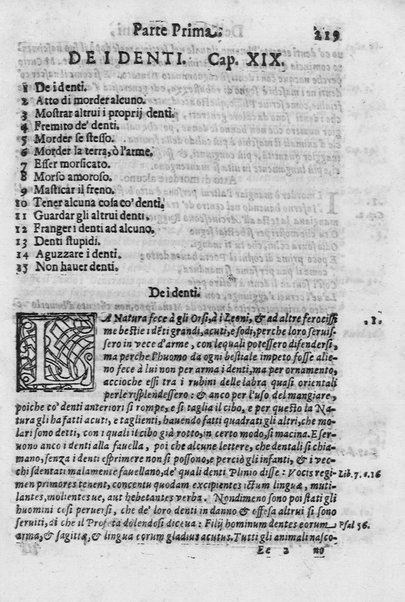 Parte Prima. 219
DE I DENTI. Cap. XIX.
1 De i denti.
2 Atto di morder alcuno.
3 Mostrar altrui i proprij denti.
4 Fremito de' denti.
5 Morder se stesso.
6 Morder la terra, ò l'arme.
7 Esser morsicato.
8 Morso amoroso.
9 Masticar il freno.
10 Tener alcuna cosa co' denti.
11 Guardar gli altrui denti.
12 Franger i denti ad alcuno.
13 Denti stupidi.
14 Aguzzare i denti.
15 Non hauer denti.
De i denti.
LA Natura fece à gli Orsi, à i Leoni, & ad altre ferocissi 1.
me bestie i dẽti grandi, acuti, e sodi, perche loro seruis
sero in vece d'arme, con lequali potessero difendersi,
ma perche l'huomo da ogni bestiale impeto fosse alie
no fece à lui non per arma i denti, ma per ornamento,
accioche essi tra i rubini delle labra quasi orientali
perle risplendessero: & anco per l'uso del mangiare,
poiche co' denti anteriori si rompe, e si taglia il cibo, e per questo la Na
tura gli ha fatti acuti, e taglienti, hauendo fatti quadrati gli altri, che mo
lari sono detti, con i quali il cibo già rotto, in certo modo, si macina. E ser
uono anco i denti alla fauella, poi che alcune lettere, che dentali si chia
mano, senza i denti esprimere non si possono, e perciò gli infanti, & i vec
chi sdentati malamente fauellano, de' quali denti Plinio disse: Vocis regi Lib. 7. c. 16
men primores tenent, concentu quodam excipientes ictum linguæ, muti
lantes, mollientes ue, aut hebetantes verba. Nondimeno sono poi stati gli
huomini così peruersi, che de' loro denti in danno & offesa altrui si sono
seruiti, di che il Profeta dolendosi diceua: Filij hominum dentes eorum Psal 56.
arma, & sagittæ, & lingua eorum gladius acutus. Tutti gli animali nasco-
Ee 2 no